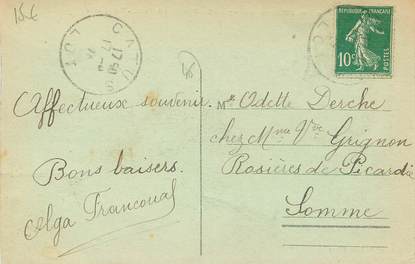 15€
CATUS
LOT
17
RÉPUBLIQUE FRANÇAISE
10c
POSTES
45
Affectueux souvenir.
Bons baisers.
Olga Francoual
Mlle Odette Derche
chez Mme Vve Grignon
Rosières de Picardie
Somme